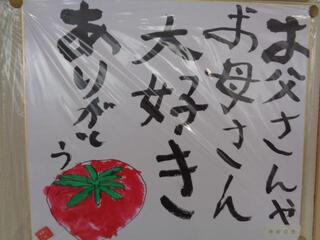 お父さんや
お母さん
大好き
ありがとう